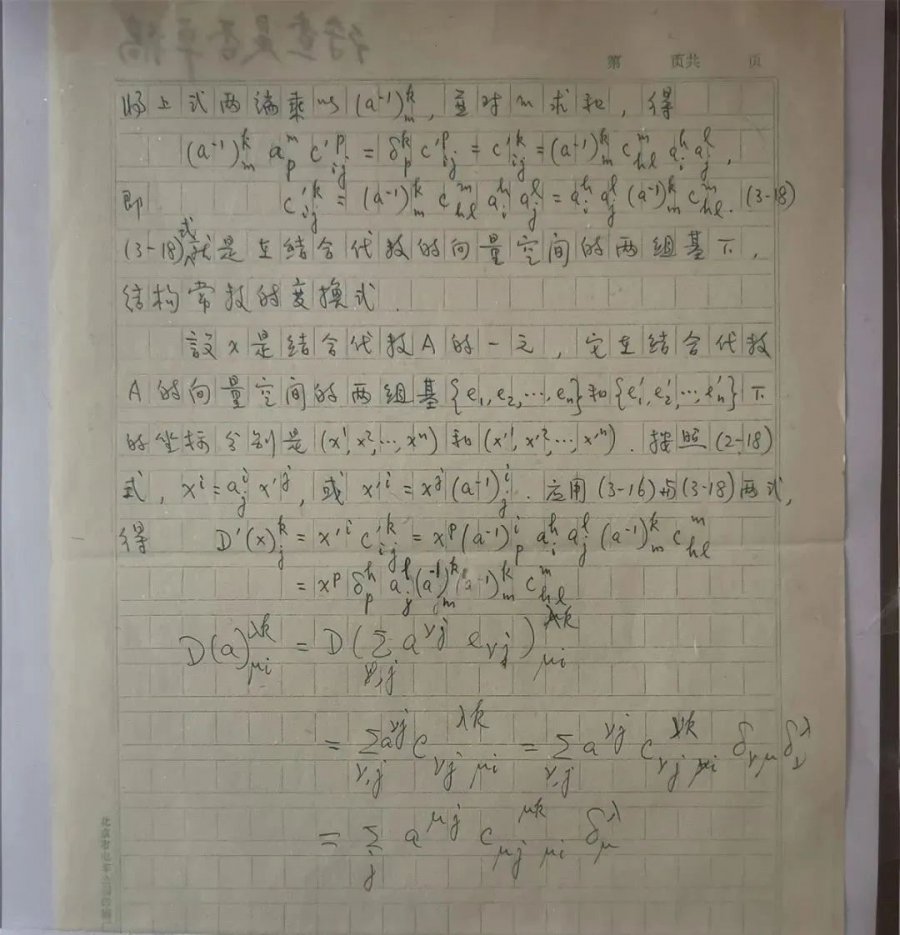 待查是否草稿
第 页共 页
将上式两端乘以 (a⁻¹)ᵏₘ, 并对 m 求和, 得
(a⁻¹)ᵏₘ aᵐₚ c'ᵖᵢⱼ = δᵏₚ c'ᵖᵢⱼ = c'ᵏᵢⱼ = (a⁻¹)ᵏₘ cᵐₕₗ aʰᵢ aˡⱼ,
即 c'ᵏᵢⱼ = (a⁻¹)ᵏₘ cᵐₕₗ aʰᵢ aˡⱼ = aʰᵢ aˡⱼ (a⁻¹)ᵏₘ cᵐₕₗ. (3-18)
(3-18)式就是在结合代数的向量空间的两组基下,
结构常数的变换式.
設 x 是结合代数 A 的一元, 它在结合代数
A 的向量空间的两组基 {e₁, e₂, ⋯, eₙ} 和 {e'₁, e'₂, ⋯, e'ₙ} 下
的坐标分别是 (x¹, x², ⋯, xⁿ) 和 (x'¹, x'², ⋯, x'ⁿ). 按照 (2-18)
式, xⁱ = aⁱⱼ x'ʲ, 或 x'ⁱ = xʲ (a⁻¹)ⁱⱼ. 应用 (3-16) 与 (3-18) 两式,
得 D'(x)ᵏⱼ = x'ⁱ c'ᵏᵢⱼ = xᵖ (a⁻¹)ⁱₚ aʰᵢ aˡⱼ (a⁻¹)ᵏₘ cᵐₕₗ
= xᵖ δʰₚ aˡⱼ (a⁻¹)ᵏₘ (a⁻¹)ᵏₘ cᵐₕₗ
D(a)^{λk}_{μi} = D(∑_{ν,j} a^{νj} e_{νj})^{λk}_{μi}
= ∑_{ν,j} a^{νj} c^{λk}_{νj μi} = ∑_{ν,j} a^{νj} c^{λk}_{νj μi} δ_{νμ} δ^{λ}_{ν}
= ∑_{j} a^{μj} c^{μk}_{μj μi} δ^{λ}_{μ}